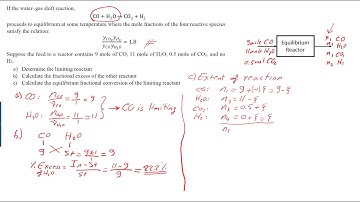 If the water-gas-shift reaction,
CO + H₂O → CO₂ + H₂
proceeds to equilibrium at some temperature where the mole fractions of the four reactive species
satisfy the relation:
y_CO₂ y_H₂ / y_CO y_H₂O = 1.8
Suppose the feed to a reactor contains 9 mole of CO, 11 mole of H₂O, 0.5 mole of CO₂, and no
H₂.
a) Determine the limiting reactant
b) Calculate the fractional excess of the other reactant
c) Calculate the equilibrium fractional conversion of the limiting reactant
9 mole CO
11 mole H₂O
0.5 mol CO₂
Equilibrium
Reactor
n₁ CO
n₂ H₂O
n₃ CO₂
n₄ H₂
a) CO: n_CO / ν_CO = 9/1 = 9
H₂O: n_H₂O / ν_H₂O = 11/1 = 11
→ CO is limiting
b) CO H₂O
9 St = 9×1/1 = 9
% Excess H₂O = In - St / St = 11 - 9 / 9 = 22.2%
c) Extent of reaction
CO: n₁ = 9 + (-1)ξ = 9 - ξ
H₂O: n₂ = 11 - ξ
CO₂: n₃ = 0.5 + ξ
H₂: n₄ = 0 + ξ = ξ
n_T